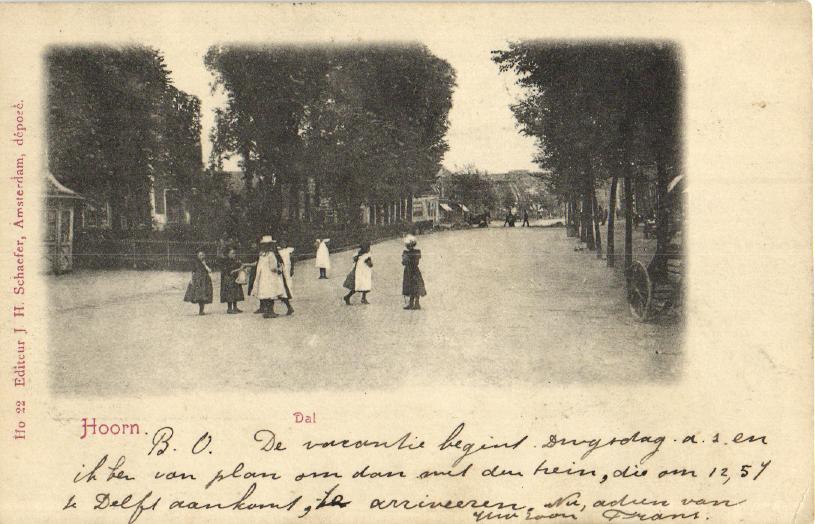 Ho 22 Editeur J. H. Schaefer, Amsterdam, déposé.
Hoorn.
Dal
B. O. De vacantie begint Dingsdag a. s. en
ik ben van plan om dan met den trein, die om 12,57
te Delft aankomt, te arriveeren. Nu, adieu van
Uw Zoon Frans.